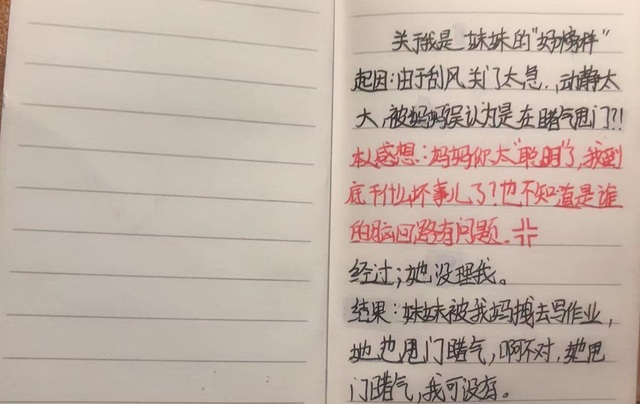 关于我是妹妹的“好榜样”
起因:由于刮风关门太急,动静太
大,被妈妈误认为是在赌气甩门?!
本人感想:妈妈你太“聪明”了,我到
底干什么坏事儿了?也不知道是谁
的脑回路有问题。
经过;她没理我。
结果:妹妹被我妈拽去写作业,
她也甩门赌气,啊不对,她甩
门赌气,我可没有。